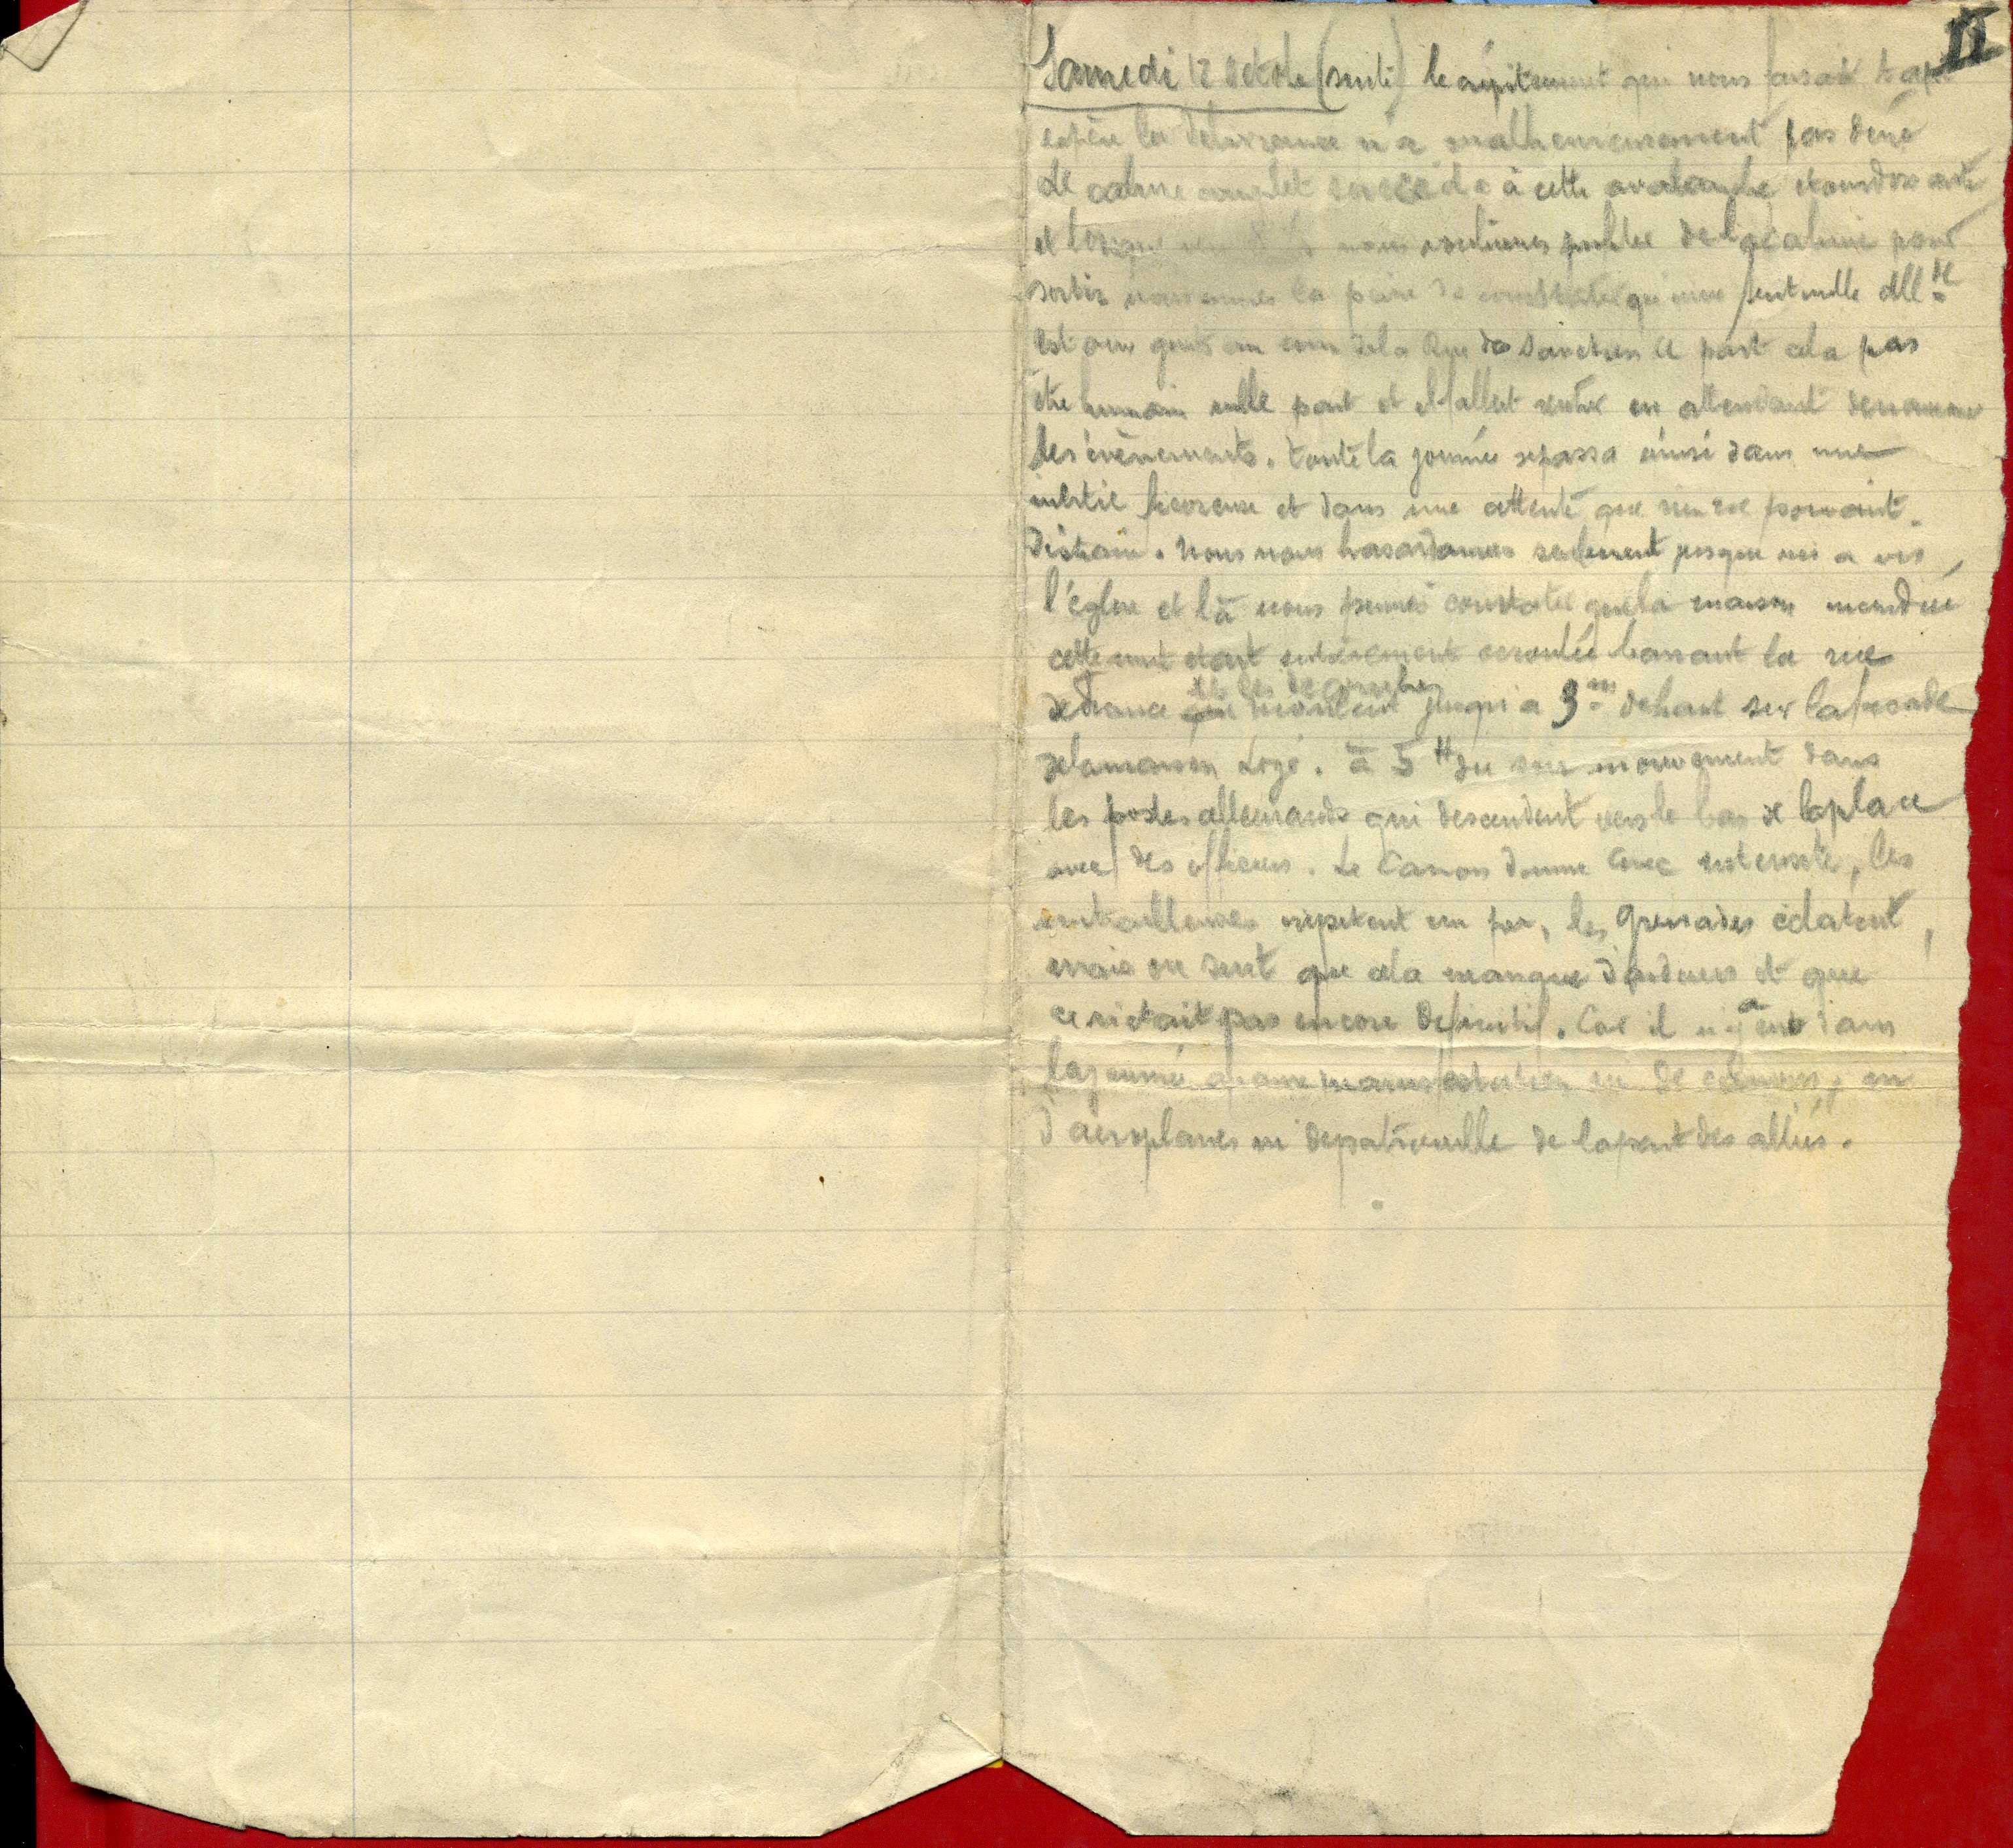 II
Samedi 12 octobre (suite) le crépitement qui nous faisait
espérer la délivrance n'a malheureusement pas duré
Le calme complet succeda à cette avalanche etourdissante
et lorsque vers 8 ½ nous voulûmes profiter de l'acalmie pour
sortir nous eumes la peine de constater qu'une sentinelle all.de
est au guet au coin de la Rue de a part cela pas
être humain nulle part et il fallut rentrer en attendant
les évènements. toute la journée se passa ainsi dans une
inertie fievreuse et dans une attente que rien ne pouvait
distraire. Nous nous hasardames seulement jusque vis a vis
l'église et là nous pumes constater que la maison incendiée
cette nuit etait entièrement ecroulée barrant la rue
de France et les decombres montent jusqu'a 3m de haut sur la facade
de la maison Logé. à 5H du soir mouvement dans
les postes allemands qui descendent vers le bas de la place
avec des officiers. Le Canon donne avec intensité, les
mitrailleuses crépitent un peu, les grenades éclatent,
mais on sent que cela manque d'ardeur et que
ce n'etait pas encore definitif. Car il n'y a eu dans
la journée aucune manifestation ni de canons, ni
d'aeroplanes ni de patrouille de la part des alliés.